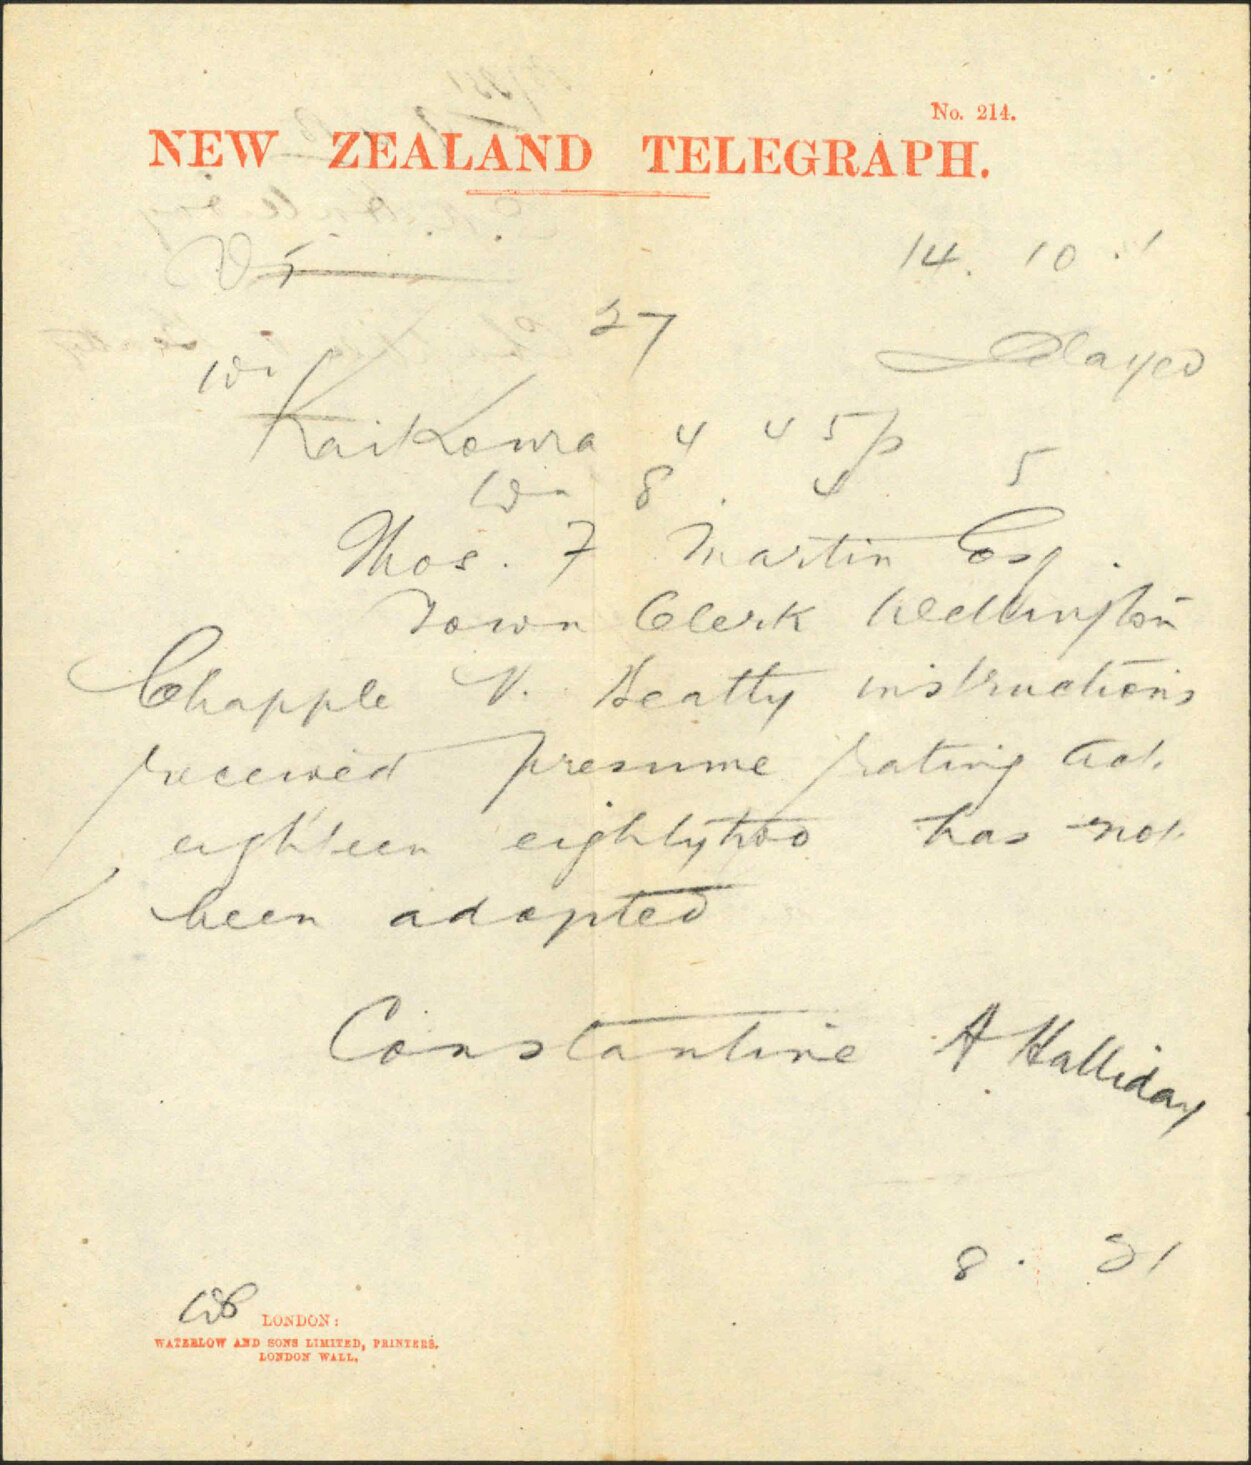 No. 214.
NEW ZEALAND TELEGRAPH.
14. 10.
27
Delayed
Kaikoura 4 45p
8. 4 5
Thos. F Martin Esq.
Town Clerk Wellington
Chapple V. Beatty instructions
received presume rating act
eighteen eightytwo has not
been adopted
Constantine A Halliday
8. 21
LONDON:
WATERLOW AND SONS LIMITED, PRINTERS,
LONDON WALL.